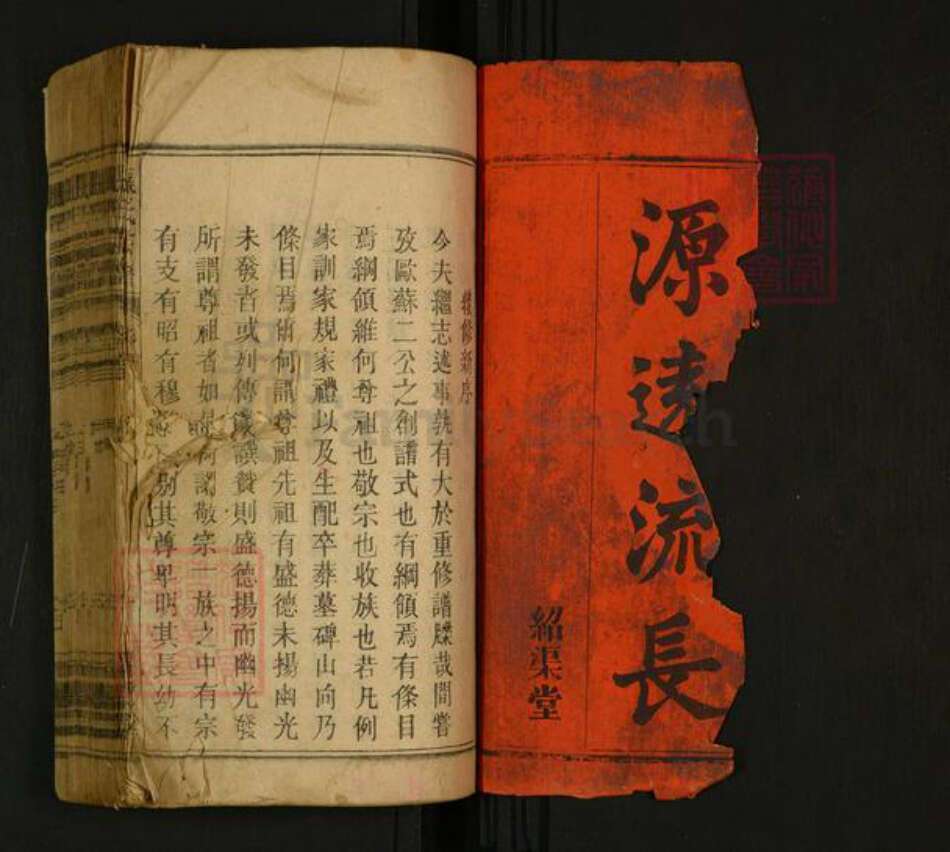 源遠流長
紹渠堂
修新序
今夫繼志述事孰有大於重修譜牒哉間嘗
攷歐蘇二公之創譜式也有綱領焉有條目
焉綱領維何尊祖也敬宗也收族也若凡例
家訓家規家禮以及生配卒葬墓碑山向乃
條目焉術何謂尊祖先祖有盛德未揚幽光
未發者或列傳或讚則盛德揚而幽光發
所謂尊祖者如是何謂敬宗一族之中有宗
有支有昭有穆別其尊卑明其長幼不